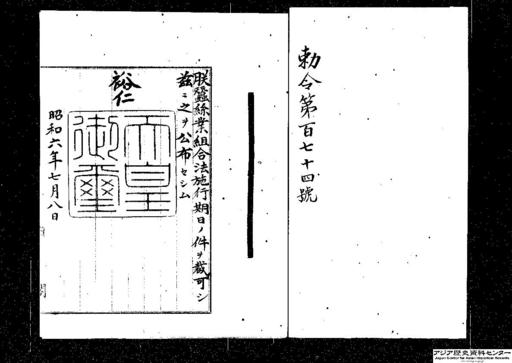 勅令第百七十四號
朕蠶絲業組合法施行期日ノ件ヲ裁可シ
茲ニ之ヲ公布セシム
裕仁
天皇御璽
昭和六年七月八日
アジア歴史資料センター
Japan Center for Asian Historical Records